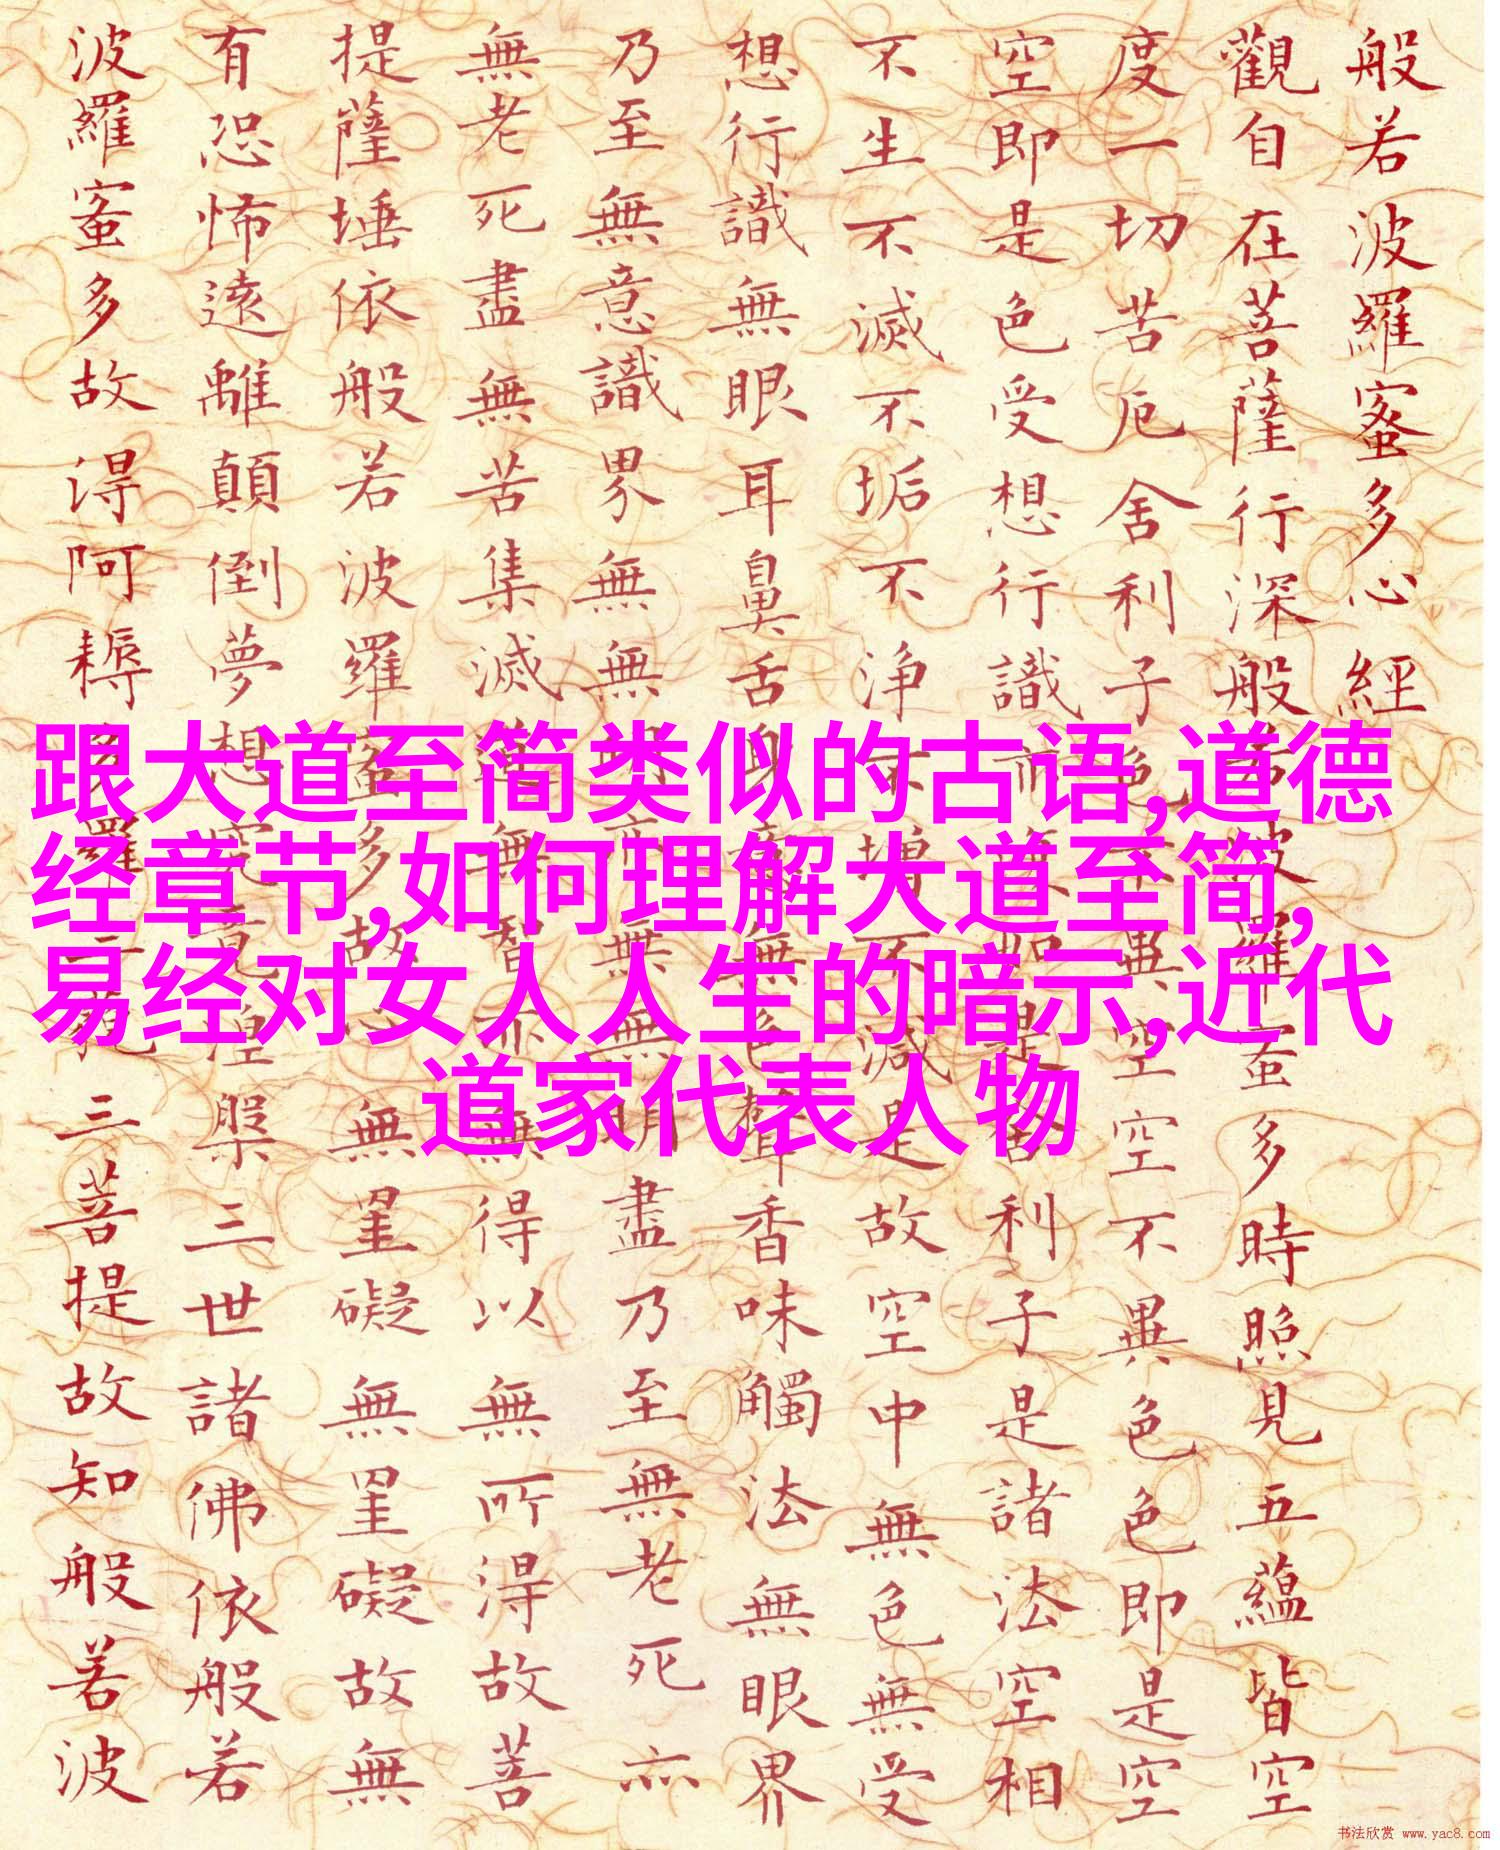 般若波羅蜜多心經
觀自在菩薩行深般若波羅蜜多時照見五蘊皆空
度一切苦厄舍利子色不異空空不異色色即是空
空即是色受想行識亦復如是舍利子是諸法空相
不生不滅不垢不净不增不減是故空中無色無受
想行識無眼耳鼻舌身意無色聲香味觸法無眼界
乃至無意識界無無明亦無無明盡乃至無老死亦
無老死盡無苦集滅道無智亦無得以無所得故菩
提薩埵依般若波羅蜜多故心無罣礙無罣礙故無
有恐怖遠離顛倒夢想究竟涅槃三世諸佛依般若
波羅蜜多故得阿耨多羅三藐三菩提故知般若波
跟大道至简类似的古语,道德
经章节,如何理解大道至简,
易经对女人人生的暗示,近代
道家代表人物
书法欣赏 www.yac8.com